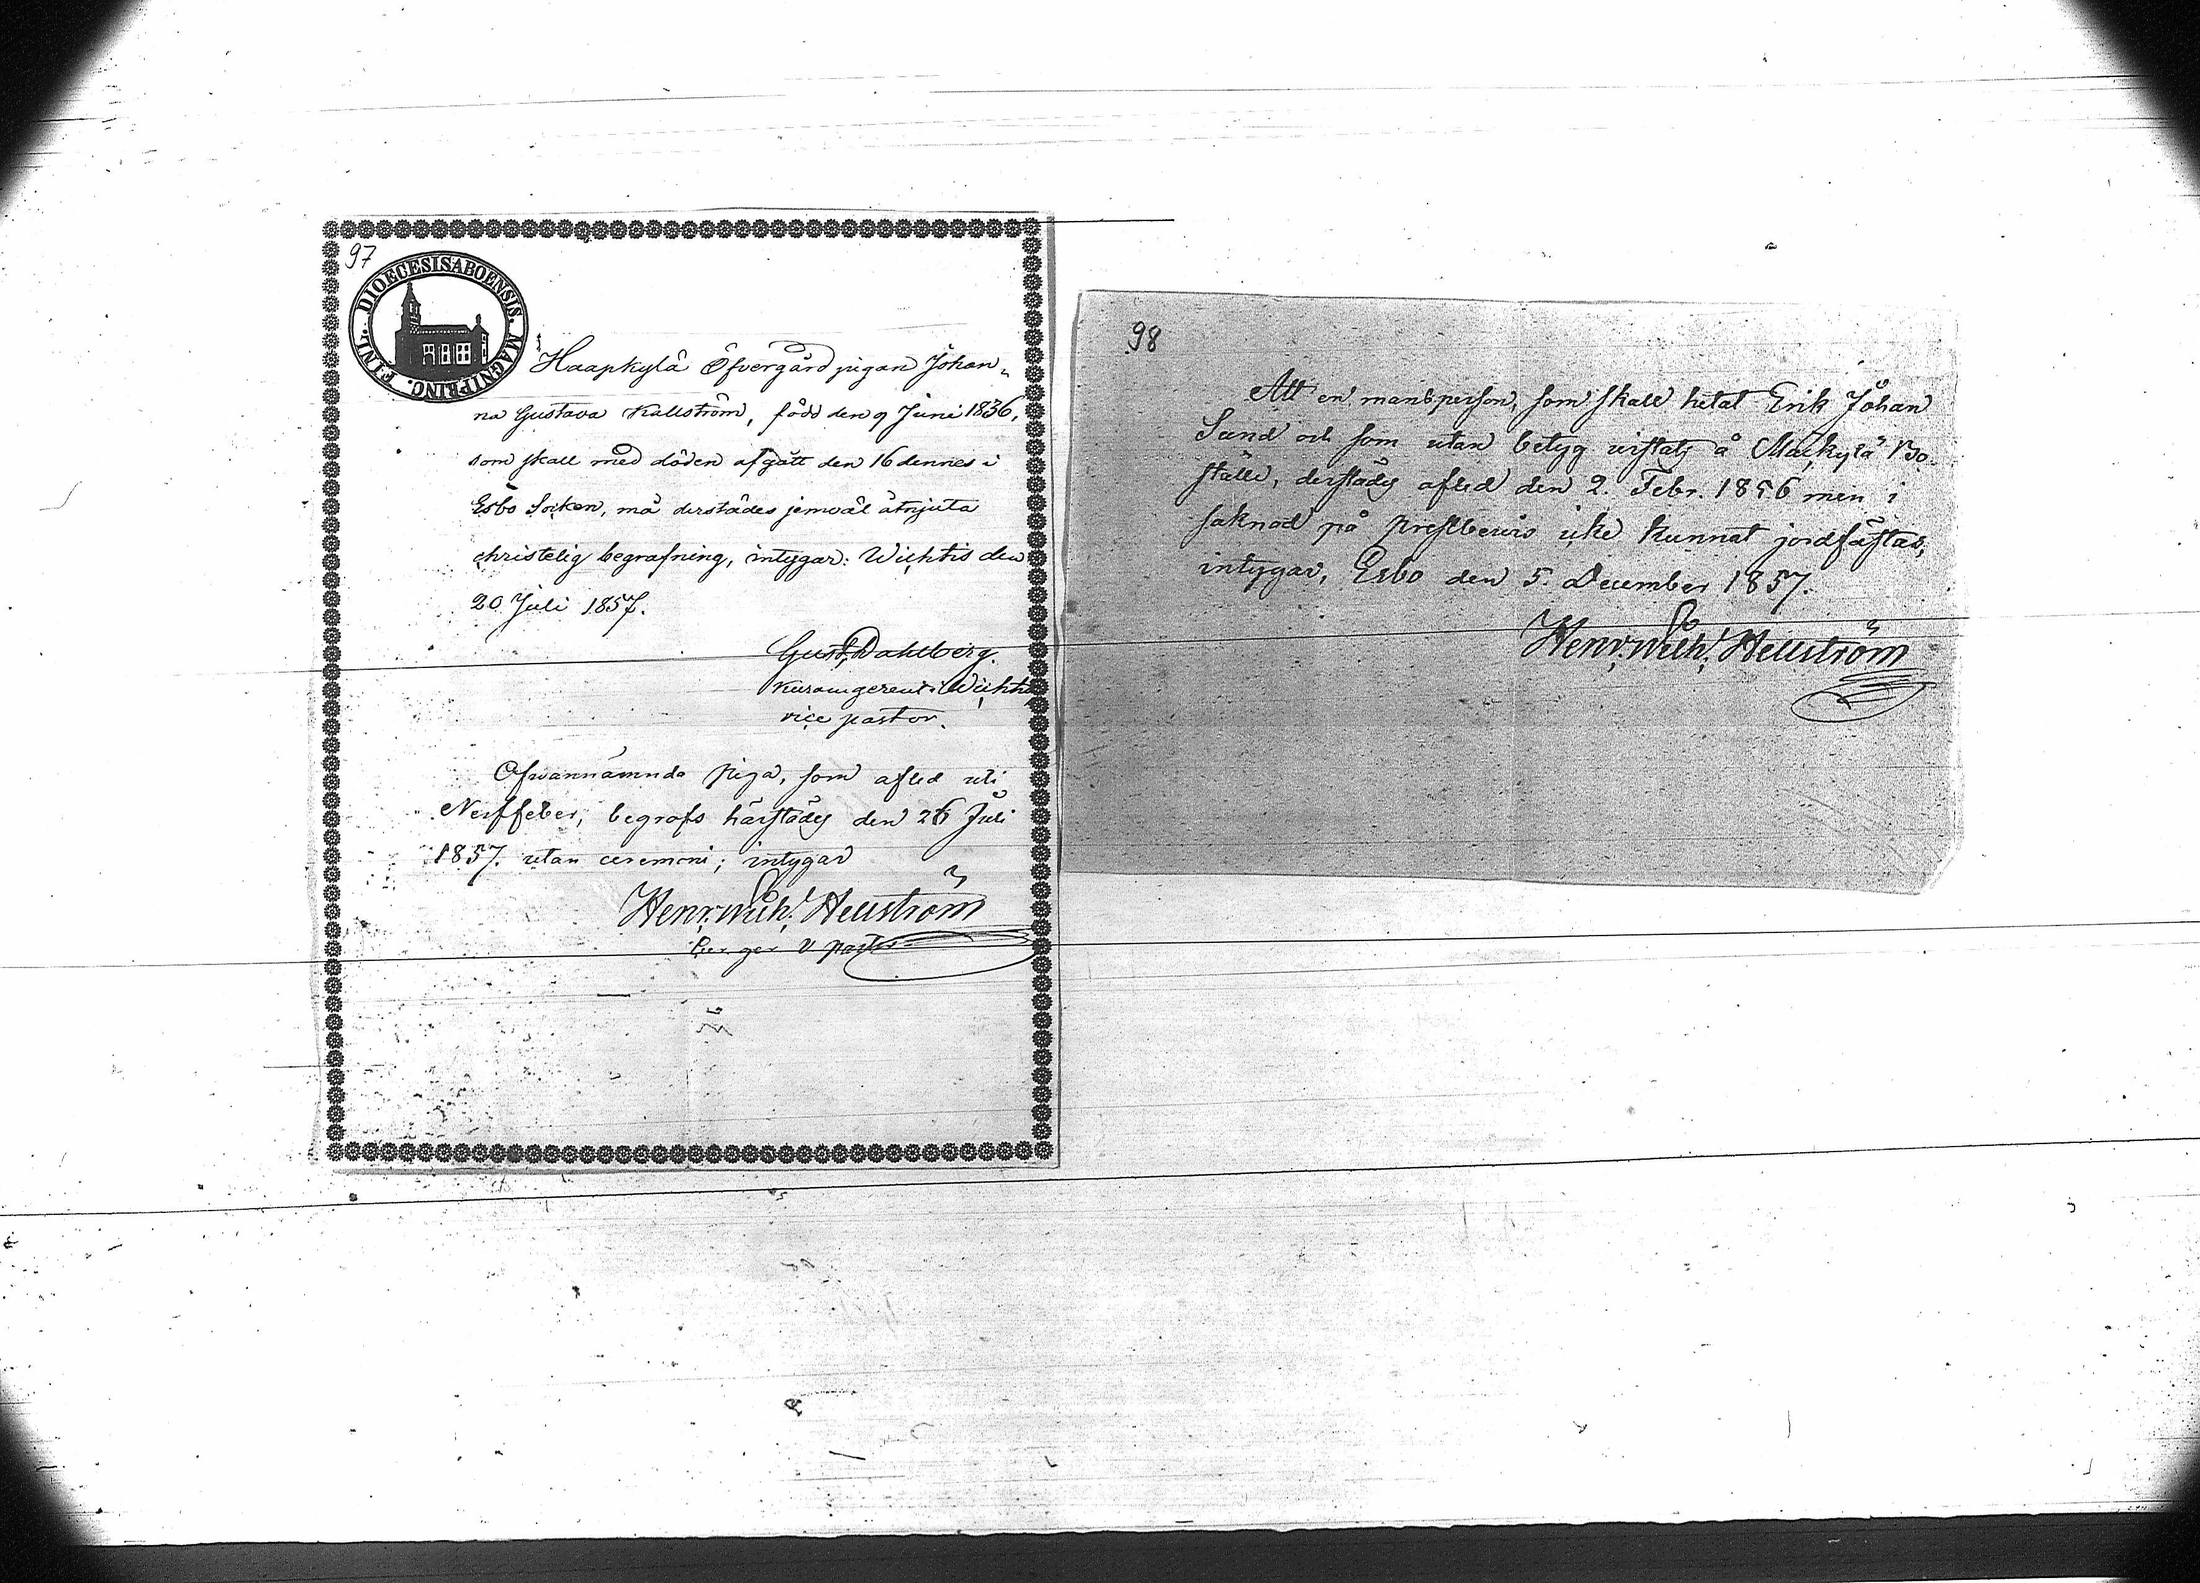 97
DIOECESIS ABOENSIS. MAGNI PRINC. FINL.
Haapkylä Öfvergård pigan Johan-
na Gustava Källström, född den 9 Juni 1836,
som skall med döden afgått den 16 dennes i
Esbo Socken, må derstädes jemväl åtnjuta
christelig begrafning, intygar: Wichtis den
20 Juli 1857.
Gust. Dahlberg.
Wichtis
vice pastor.
Ofvannämnda piga, som afled uti
Nerffeber, begrofs härstädes den 26 Juli
1857. utan ceremoni; intygar
Henr. Wilh. Hellström
v pastor
98
Att en mansperson, som skall hetat Erik Johan
Sund och som utan betyg vistats å Mackylä Bo-
ställe, derstädes afled den 2. Febr. 1856 men i
saknad på prestbewis icke kunnat jordfästas,
intygar, Esbo den 5. December 1857.
Henr. Wilh. Hellström